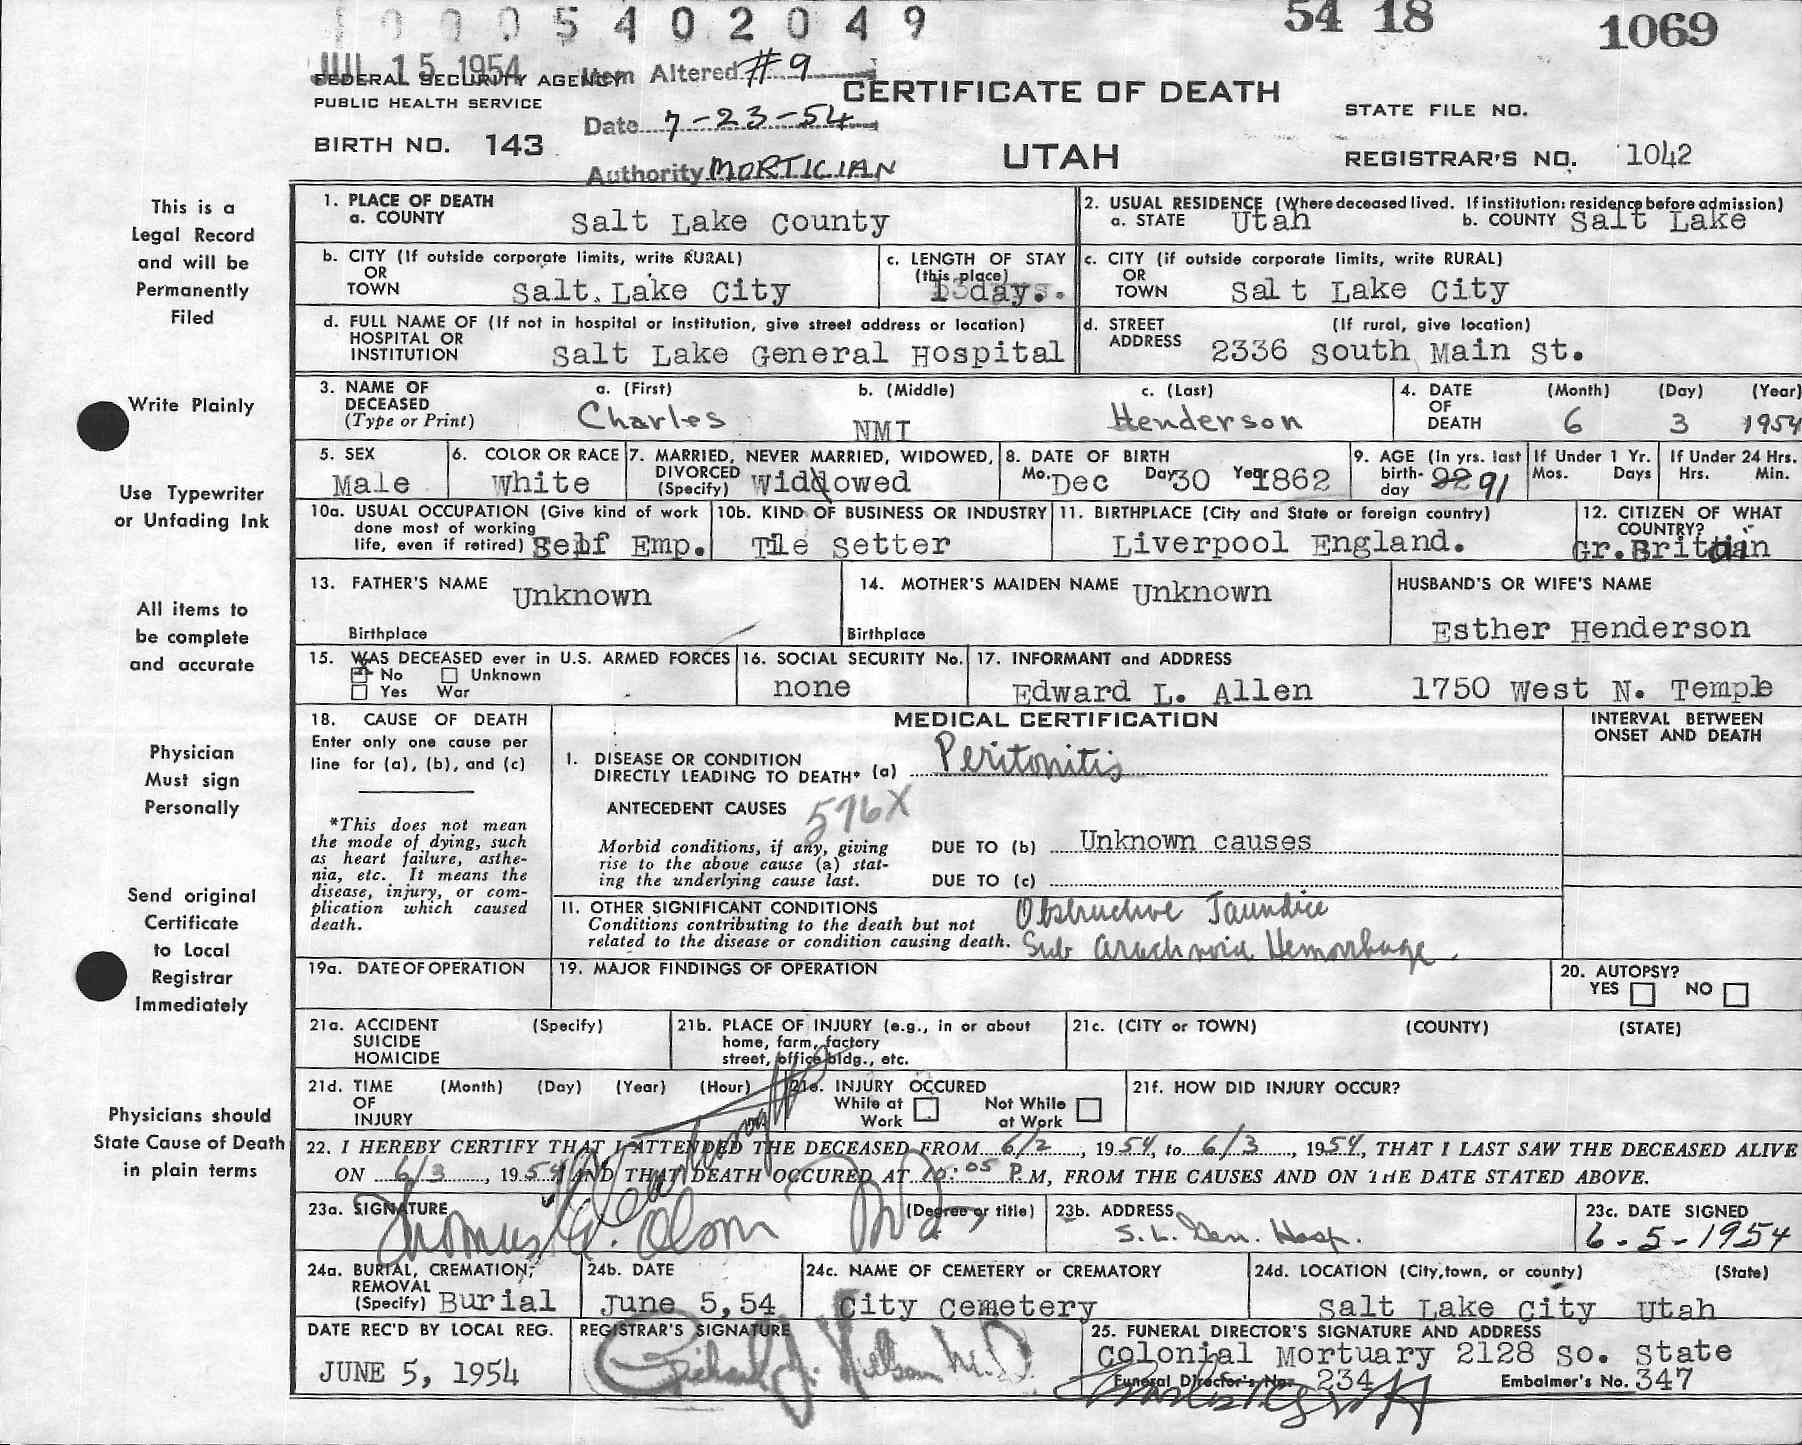 1 0 0 0 5 4 0 2 0 4 9
54 18
1069
JUL 15 1954
Item Altered #9
FEDERAL SECURITY AGENCY
PUBLIC HEALTH SERVICE
CERTIFICATE OF DEATH
STATE FILE NO.
Date 7-23-54
BIRTH NO. 143
UTAH
REGISTRAR'S NO. 1042
Authority MORTICIAN
This is a
Legal Record
and will be
Permanently
Filed
Write Plainly
Use Typewriter
or Unfading Ink
All items to
be complete
and accurate
Physician
Must sign
Personally
Send original
Certificate
to Local
Registrar
Immediately
Physicians should
State Cause of Death
in plain terms
1. PLACE OF DEATH
a. COUNTY Salt Lake County
2. USUAL RESIDENCE (Where deceased lived. If institution: residence before admission)
a. STATE Utah b. COUNTY Salt Lake
b. CITY (If outside corporate limits, write RURAL)
OR
TOWN Salt Lake City
c. LENGTH OF STAY
(this place)
day.
c. CITY (if outside corporate limits, write RURAL)
OR
TOWN Salt Lake City
d. FULL NAME OF (If not in hospital or institution, give street address or location)
HOSPITAL OR
INSTITUTION Salt Lake General Hospital
d. STREET (If rural, give location)
ADDRESS 2336 South Main St.
3. NAME OF a. (First) b. (Middle) c. (Last)
DECEASED
(Type or Print) Charles NMI Henderson
4. DATE (Month) (Day) (Year)
OF
DEATH 6 3 1954
5. SEX
Male
6. COLOR OR RACE
White
7. MARRIED, NEVER MARRIED, WIDOWED,
DIVORCED
(Specify) Widdowed
8. DATE OF BIRTH
Mo. Dec Day 30 Year 1862
9. AGE (In yrs. last
birth-
day 92 91
If Under 1 Yr.
Mos. Days
If Under 24 Hrs.
Hrs. Min.
10a. USUAL OCCUPATION (Give kind of work
done most of working
life, even if retired) Self Emp.
10b. KIND OF BUSINESS OR INDUSTRY
Tile Setter
11. BIRTHPLACE (City and State or foreign country)
Liverpool England.
12. CITIZEN OF WHAT
COUNTRY?
Gr.Britain
13. FATHER'S NAME Unknown
Birthplace
14. MOTHER'S MAIDEN NAME Unknown
Birthplace
HUSBAND'S OR WIFE'S NAME
Esther Henderson
15. WAS DECEASED ever in U.S. ARMED FORCES
No Unknown
Yes War
16. SOCIAL SECURITY No.
none
17. INFORMANT and ADDRESS
Edward L. Allen 1750 West N. Temple
18. CAUSE OF DEATH
Enter only one cause per
line for (a), (b), and (c)
*This does not mean
the mode of dying, such
as heart failure, asthe-
nia, etc. It means the
disease, injury, or com-
plication which caused
death.
MEDICAL CERTIFICATION
INTERVAL BETWEEN
ONSET AND DEATH
I. DISEASE OR CONDITION
DIRECTLY LEADING TO DEATH* (a) Peritonitis
ANTECEDENT CAUSES 576X
Morbid conditions, if any, giving
rise to the above cause (a) stat-
ing the underlying cause last.
DUE TO (b) Unknown causes
DUE TO (c)
11. OTHER SIGNIFICANT CONDITIONS
Conditions contributing to the death but not
related to the disease or condition causing death.
Obstructive Jaundice
Sub arachnoid Hemorrhage.
19a. DATE OF OPERATION
19. MAJOR FINDINGS OF OPERATION
20. AUTOPSY?
YES NO
21a. ACCIDENT (Specify)
SUICIDE
HOMICIDE
21b. PLACE OF INJURY (e.g., in or about
home, farm, factory
street, office bldg., etc.
21c. (CITY or TOWN) (COUNTY) (STATE)
21d. TIME (Month) (Day) (Year) (Hour)
OF
INJURY
21e. INJURY OCCURED
While at Not While
Work at Work
21f. HOW DID INJURY OCCUR?
22. I HEREBY CERTIFY THAT I ATTENDED THE DECEASED FROM 6/2, 1954, to 6/3, 1954, THAT I LAST SAW THE DECEASED ALIVE
ON 6/3, 1954 AND THAT DEATH OCCURED AT 10:05 P.M, FROM THE CAUSES AND ON THE DATE STATED ABOVE.
23a. SIGNATURE (Degree or title)
Thomas G. Olson MD
23b. ADDRESS
S. L. Gen. Hosp.
23c. DATE SIGNED
6-5-1954
24a. BURIAL, CREMATION,
REMOVAL
(Specify) Burial
24b. DATE
June 5,54
24c. NAME OF CEMETERY or CREMATORY
City Cemetery
24d. LOCATION (City,town, or county) (State)
Salt Lake City Utah
DATE REC'D BY LOCAL REG.
JUNE 5, 1954
REGISTRAR'S SIGNATURE
Richard J. Nelson M.D.
25. FUNERAL DIRECTOR'S SIGNATURE AND ADDRESS
Colonial Mortuary 2128 So. State
Funeral Director's No. 234 Embalmer's No. 347